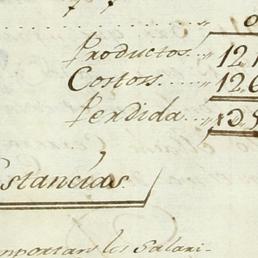 Productos 12,1
Costos 12,6
Perdida
stancias.
importan los Salari-